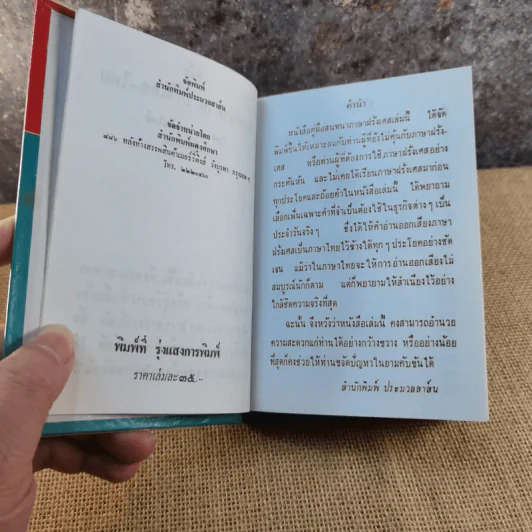 จัดพิมพ์
สำนักพิมพ์ประมวลสาส์น
จัดจำหน่ายโดย
สำนักพิมพ์ผดุงศึกษา
๘๘๖ หลังห้างสรรพสินค้าเมอร์รี่คิงส์ วังบูรพา กรุงเทพ ฯ
โทร.
พิมพ์ที่ รุ่งแสงการพิมพ์
ราคาเล่มละ ๓๕.-
คำนำ
หนังสือคู่มือสนทนาภาษาฝรั่งเศสเล่มนี้ ได้จัด
พิมพ์ขึ้นให้เหมาะสมกับท่านผู้ที่ยังไม่คุ้นกับภาษาฝรั่ง
เศส หรือท่านผู้ที่ต้องการใช้ภาษาฝรั่งเศสอย่าง
กระทันหัน และไม่เคยได้เรียนภาษาฝรั่งเศสมาก่อน
ทุกประโยคและถ้อยคำในหนังสือเล่มนี้ ได้พยายาม
เลือกเฟ้นเฉพาะคำที่จำเป็นต้องใช้ในธุรกิจต่างๆ เป็น
ประจำวันจริงๆ ซึ่งได้ให้คำอ่านออกเสียงภาษา
ฝรั่งเศสเป็นภาษาไทยไว้ข้างใต้ทุกๆ ประโยคอย่างชัด
เจน แม้ว่าในภาษาไทยจะให้การอ่านออกเสียงไม่
สมบูรณ์นักก็ตาม แต่ก็พยายามให้สำเนียงไว้อย่าง
ใกล้ชิดความจริงที่สุด
ฉะนั้น จึงหวังว่าหนังสือเล่มนี้ คงสามารถอำนวย
ความสะดวกแก่ท่านได้อย่างกว้างขวาง หรืออย่างน้อย
ที่สุดก็คงช่วยให้ท่านขจัดปัญหาในยามคับขันได้
สำนักพิมพ์ ประมวลสาส์น